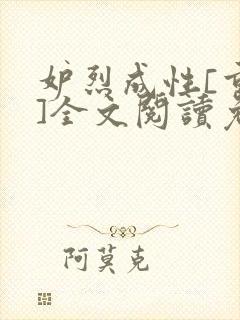 妒烈成性[重
]全文閱讀老
阿莫克